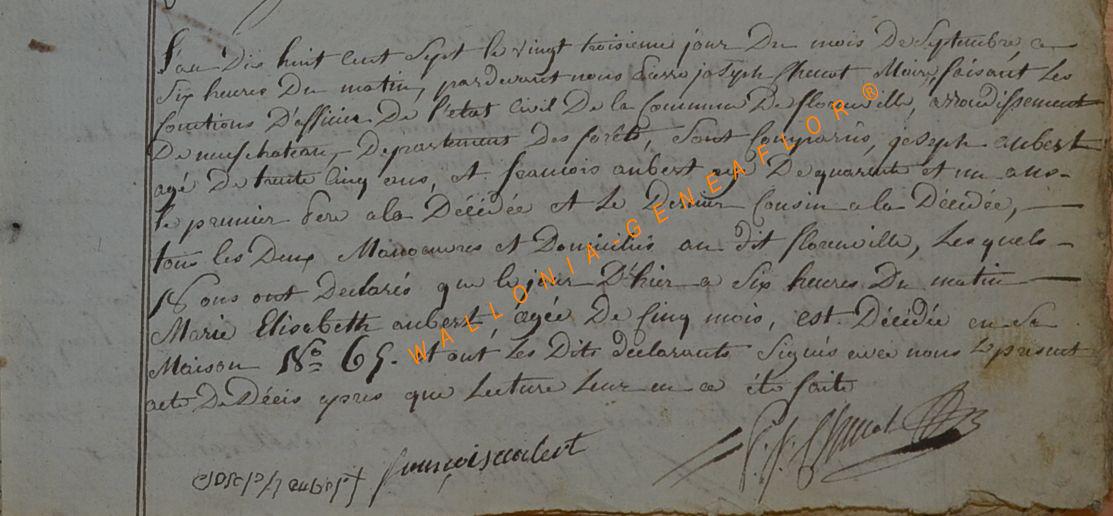 L'an Dix huit cent Sept le vingt troisieme jour Du mois De Septembre, a
Six heures Du matin, pardevant nous Pierre joseph Maire, faisant Les
fonctions D'officier De l'état Civil De la Commune De florenville, arrondissement
De neufchateau, Departement Des forêts, Sont Comparûs, joseph aubert
agé De trente Cinq ans, et françois aubert agé De quarente et un ans
le premier Père a la Décédée et Le Dernier Cousin a la Décédée,
tous les Deux Manoeuvres et Domiciliés au dit florenville, Lesquels
Nous ont Declarés que le jour D'hier a Six heures Du matin
Marie Elisabeth aubert, agée De Cinq mois, est Décédée en Sa
Maison N° 65. et ont Les Dits declarants Signés avec nous Le present
acte De Décès apres que Lecture Leur en a été faite
joseph aubert françois aubert P. J.
WALLONIA-GENEAFLOR ®